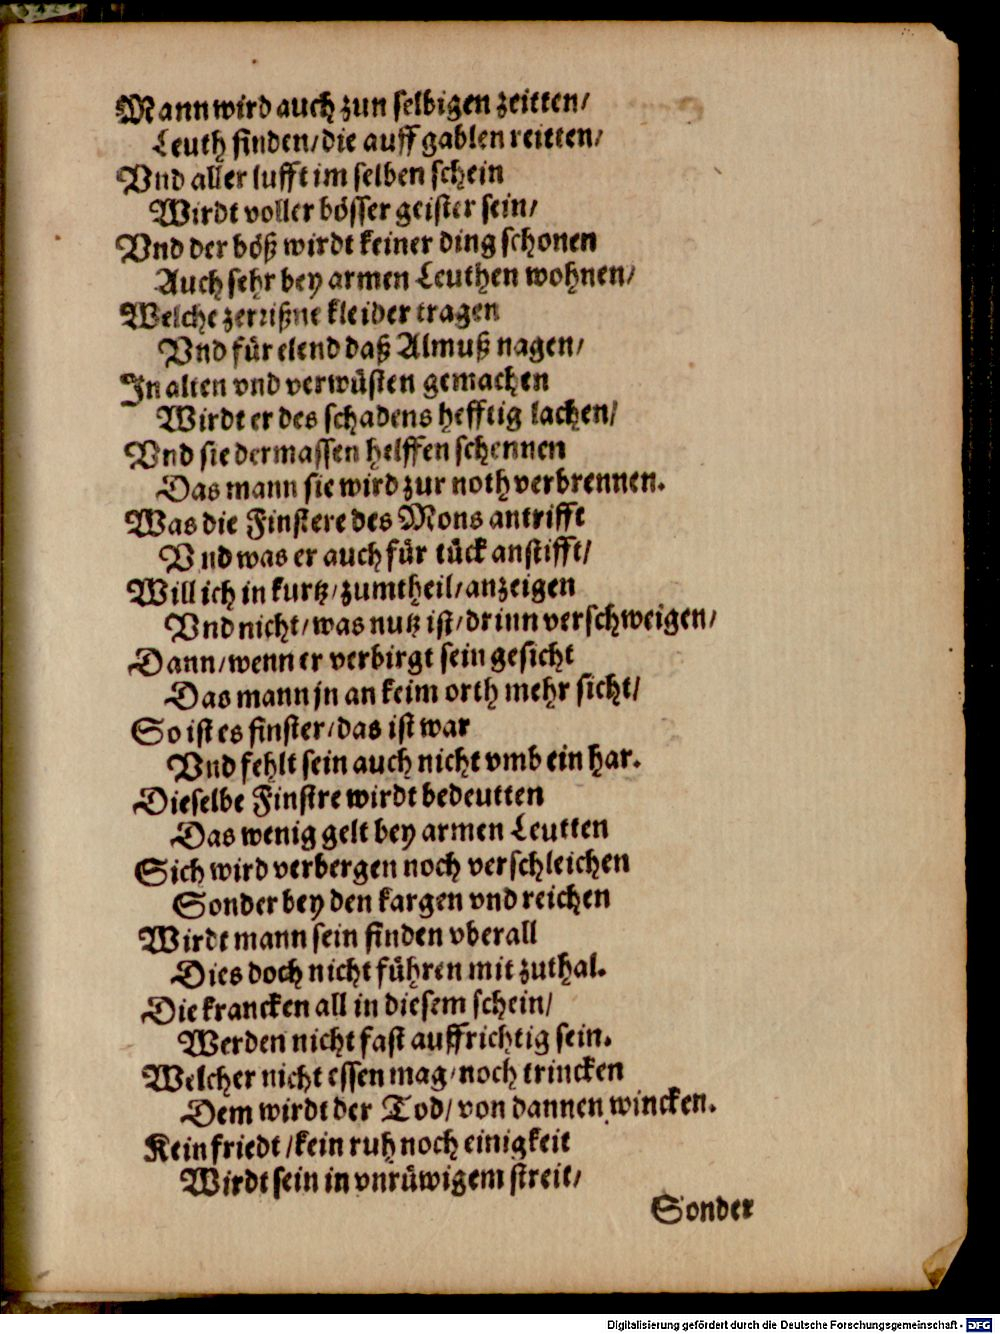 Mann wird auch zun selbigen zeitten/
Leuth finden/die auff gablen reitten/
Vnd aller lufft im selben schein
Wirdt voller bösser geister sein/
Vnd der böß wirdt keiner ding schonen
Auch sehr bey armen Leuthen wohnen/
Welche zerrißne kleider tragen
Vnd für elend daß Almuß nagen/
In alten vnd verwüsten gemachen
Wirdt er des schadens hefftig lachen/
Vnd sie dermassen helffen schennen
Das mann sie wird zur noth verbrennen.
Was die Finstere des Mons antrifft
Vnd was er auch für tück anstifft/
Will ich in kurtz/zumtheil/anzeigen
Vnd nicht/was nutz ist/drinn verschweigen/
Dann/wenn er verbirgt sein gesicht
Das mann jn an keim orth mehr sicht/
So ist es finster/das ist war
Vnd fehlt sein auch nicht vmb ein har.
Dieselbe Finstre wirdt bedeutten
Das wenig gelt bey armen Leutten
Sich wird verbergen noch verschleichen
Sonder bey den kargen vnd reichen
Wirdt mann sein finden vberall
Dies doch nicht führen mit zuthal.
Die krancken all in diesem schein/
Werden nicht fast auffrichtig sein.
Welcher nicht essen mag/noch trincken
Dem wirdt der Tod/von dannen wincken.
Kein friedt/kein ruh noch einigkeit
Wirdt sein in vnrüwigem streit/
Sonder
Digitalisierung gefördert durch die Deutsche Forschungsgemeinschaft - DFG